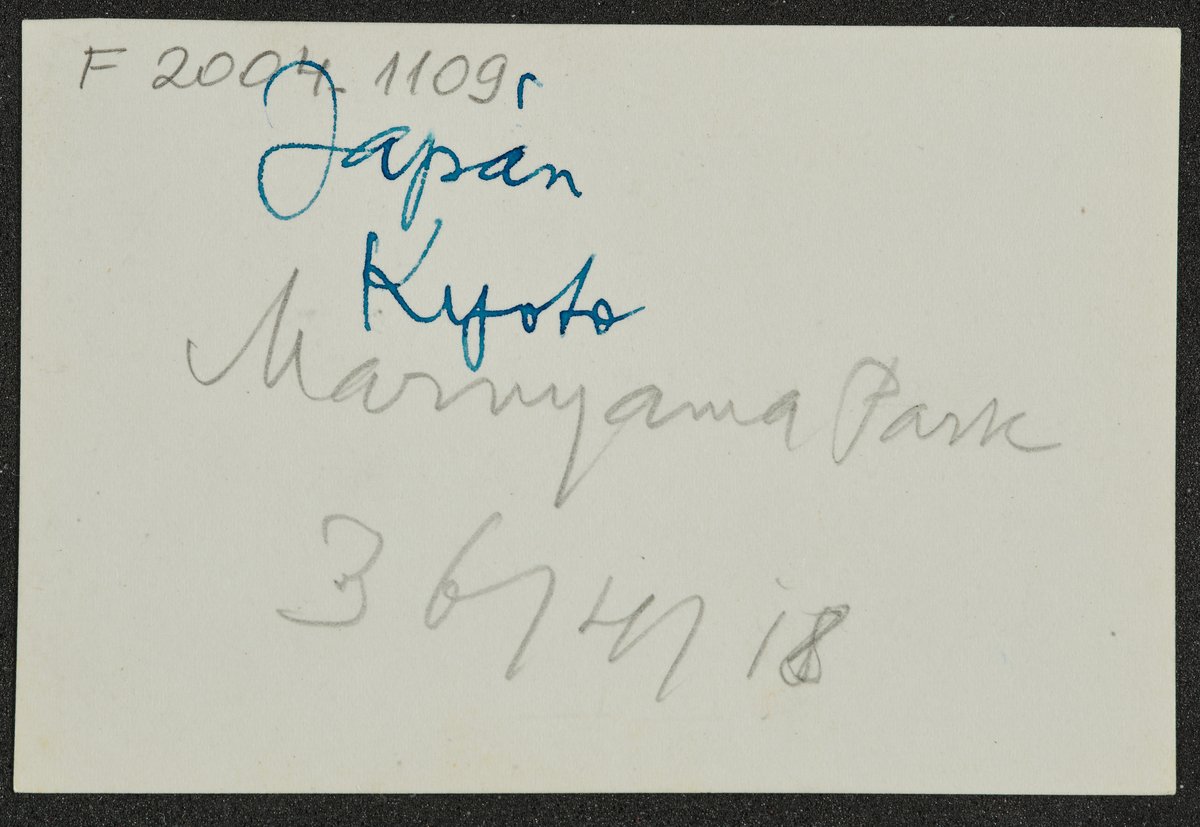 F 2004. 1109
Japán
Kyoto
Maruyama Park
36/4/18